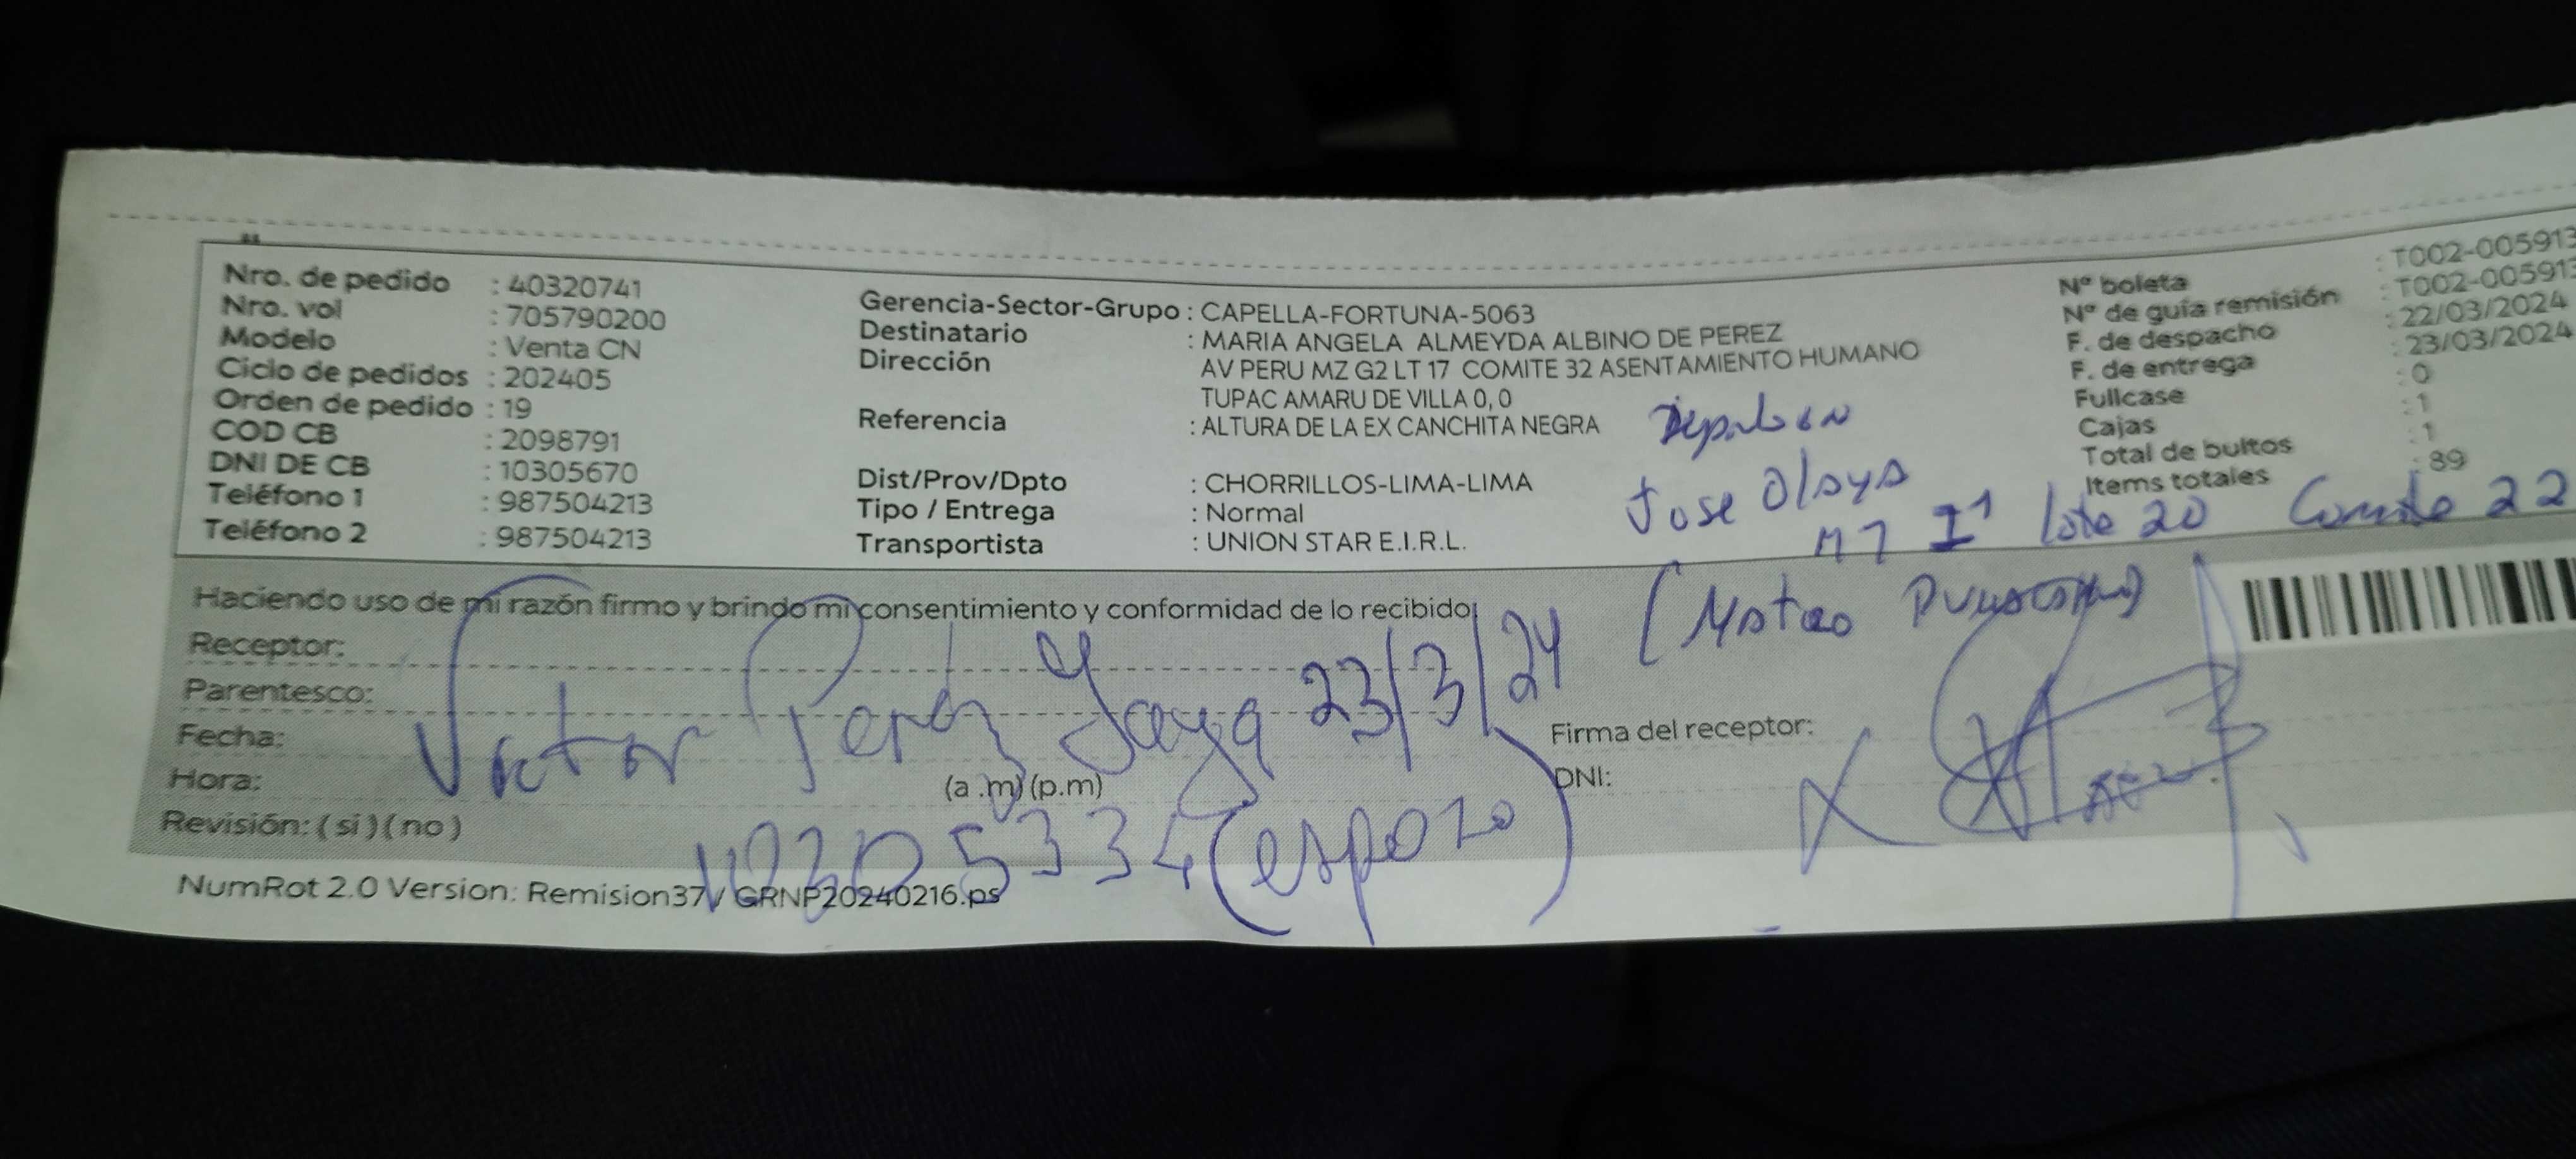 Nro. de pedido : 40320741
Nro. vol : 705790200
Modelo : Venta CN
Ciclo de pedidos : 202405
Orden de pedido : 19
COD CB : 2098791
DNI DE CB : 10305670
Teléfono 1 : 987504213
Teléfono 2 : 987504213
Gerencia-Sector-Grupo : CAPELLA-FORTUNA-5063
Destinatario : MARIA ANGELA ALMEYDA ALBINO DE PEREZ
Dirección AV PERU MZ G2 LT 17 COMITE 32 ASENTAMIENTO HUMANO
TUPAC AMARU DE VILLA 0, 0
Referencia : ALTURA DE LA EX CANCHITA NEGRA
Dist/Prov/Dpto : CHORRILLOS-LIMA-LIMA
Tipo / Entrega : Normal
Transportista : UNION STAR E.I.R.L.
Nº boleta : T002-005913
Nº de guía remisión : T002-005913
F. de despacho : 22/03/2024
F. de entrega : 23/03/2024
Fullcase : 0
Cajas : 1
Total de bultos : 1
Items totales : 89
Jose Olaya
lote 20 Comite 22
(Mateo
Haciendo uso de mi razón firmo y brindo mi consentimiento y conformidad de lo recibido
Receptor:
Parentesco:
Victor Perez 23/3/24
Fecha:
Hora: (a .m) (p.m)
Revisión: ( si ) ( no )
10305334 (esposo)
Firma del receptor:
DNI:
NumRot 2.0 Version: Remision37 / GRNP20240216.ps